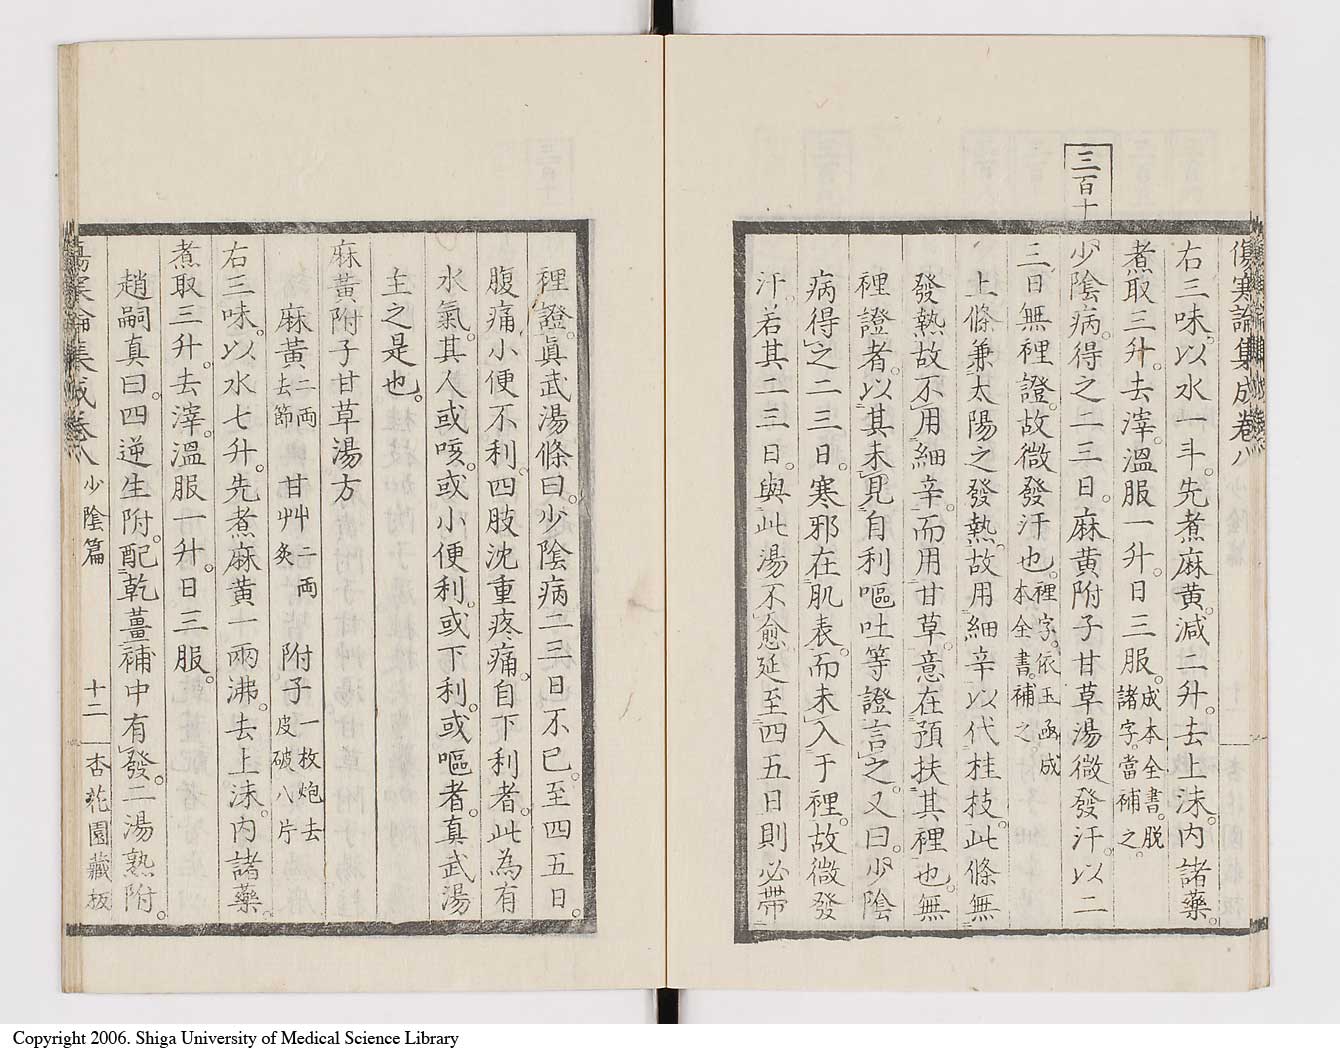 傷寒論集成卷八
右三味。以水一斗。先煮麻黃。減二升。去上沫。內諸藥。
煮取三升。去滓。溫服一升。日三服。成本全書。脫諸字。當補之。
三百十
少陰病。得之二三日。麻黃附子甘草湯微發汗。以二
三日無裡證。故微發汗也。裡字。依玉函成本全書。補之。
上條兼太陽之發熱。故用細辛以代桂枝。此條無
發熱故不用細辛。而用甘草。意在預扶其裡也。無
裡證者。以其未見自利嘔吐等證言之。又曰。少陰
病得之二三日。寒邪在肌表。而未入于裡。故微發
汗。若其二三日。與此湯不愈延至四五日則必帶
裡證。眞武湯條曰。少陰病二三日不已。至四五日。
腹痛。小便不利。四肢沈重疼痛。自下利者。此為有
水氣。其人或咳。或小便利。或下利。或嘔者。真武湯
主之是也。
麻黃附子甘草湯方
麻黃二兩去節 甘艸二兩炙 附子一枚炮去皮破八片
右三味。以水七升。先煮麻黃一兩沸。去上沫。內諸藥。
煮取三升。去滓。溫服一升。日三服。
趙嗣真曰。四逆生附。配乾薑補中有發。二湯熟附。
傷寒論集成卷八 少陰篇 十二 杏花園藏板
Copyright 2006. Shiga University of Medical Science Library